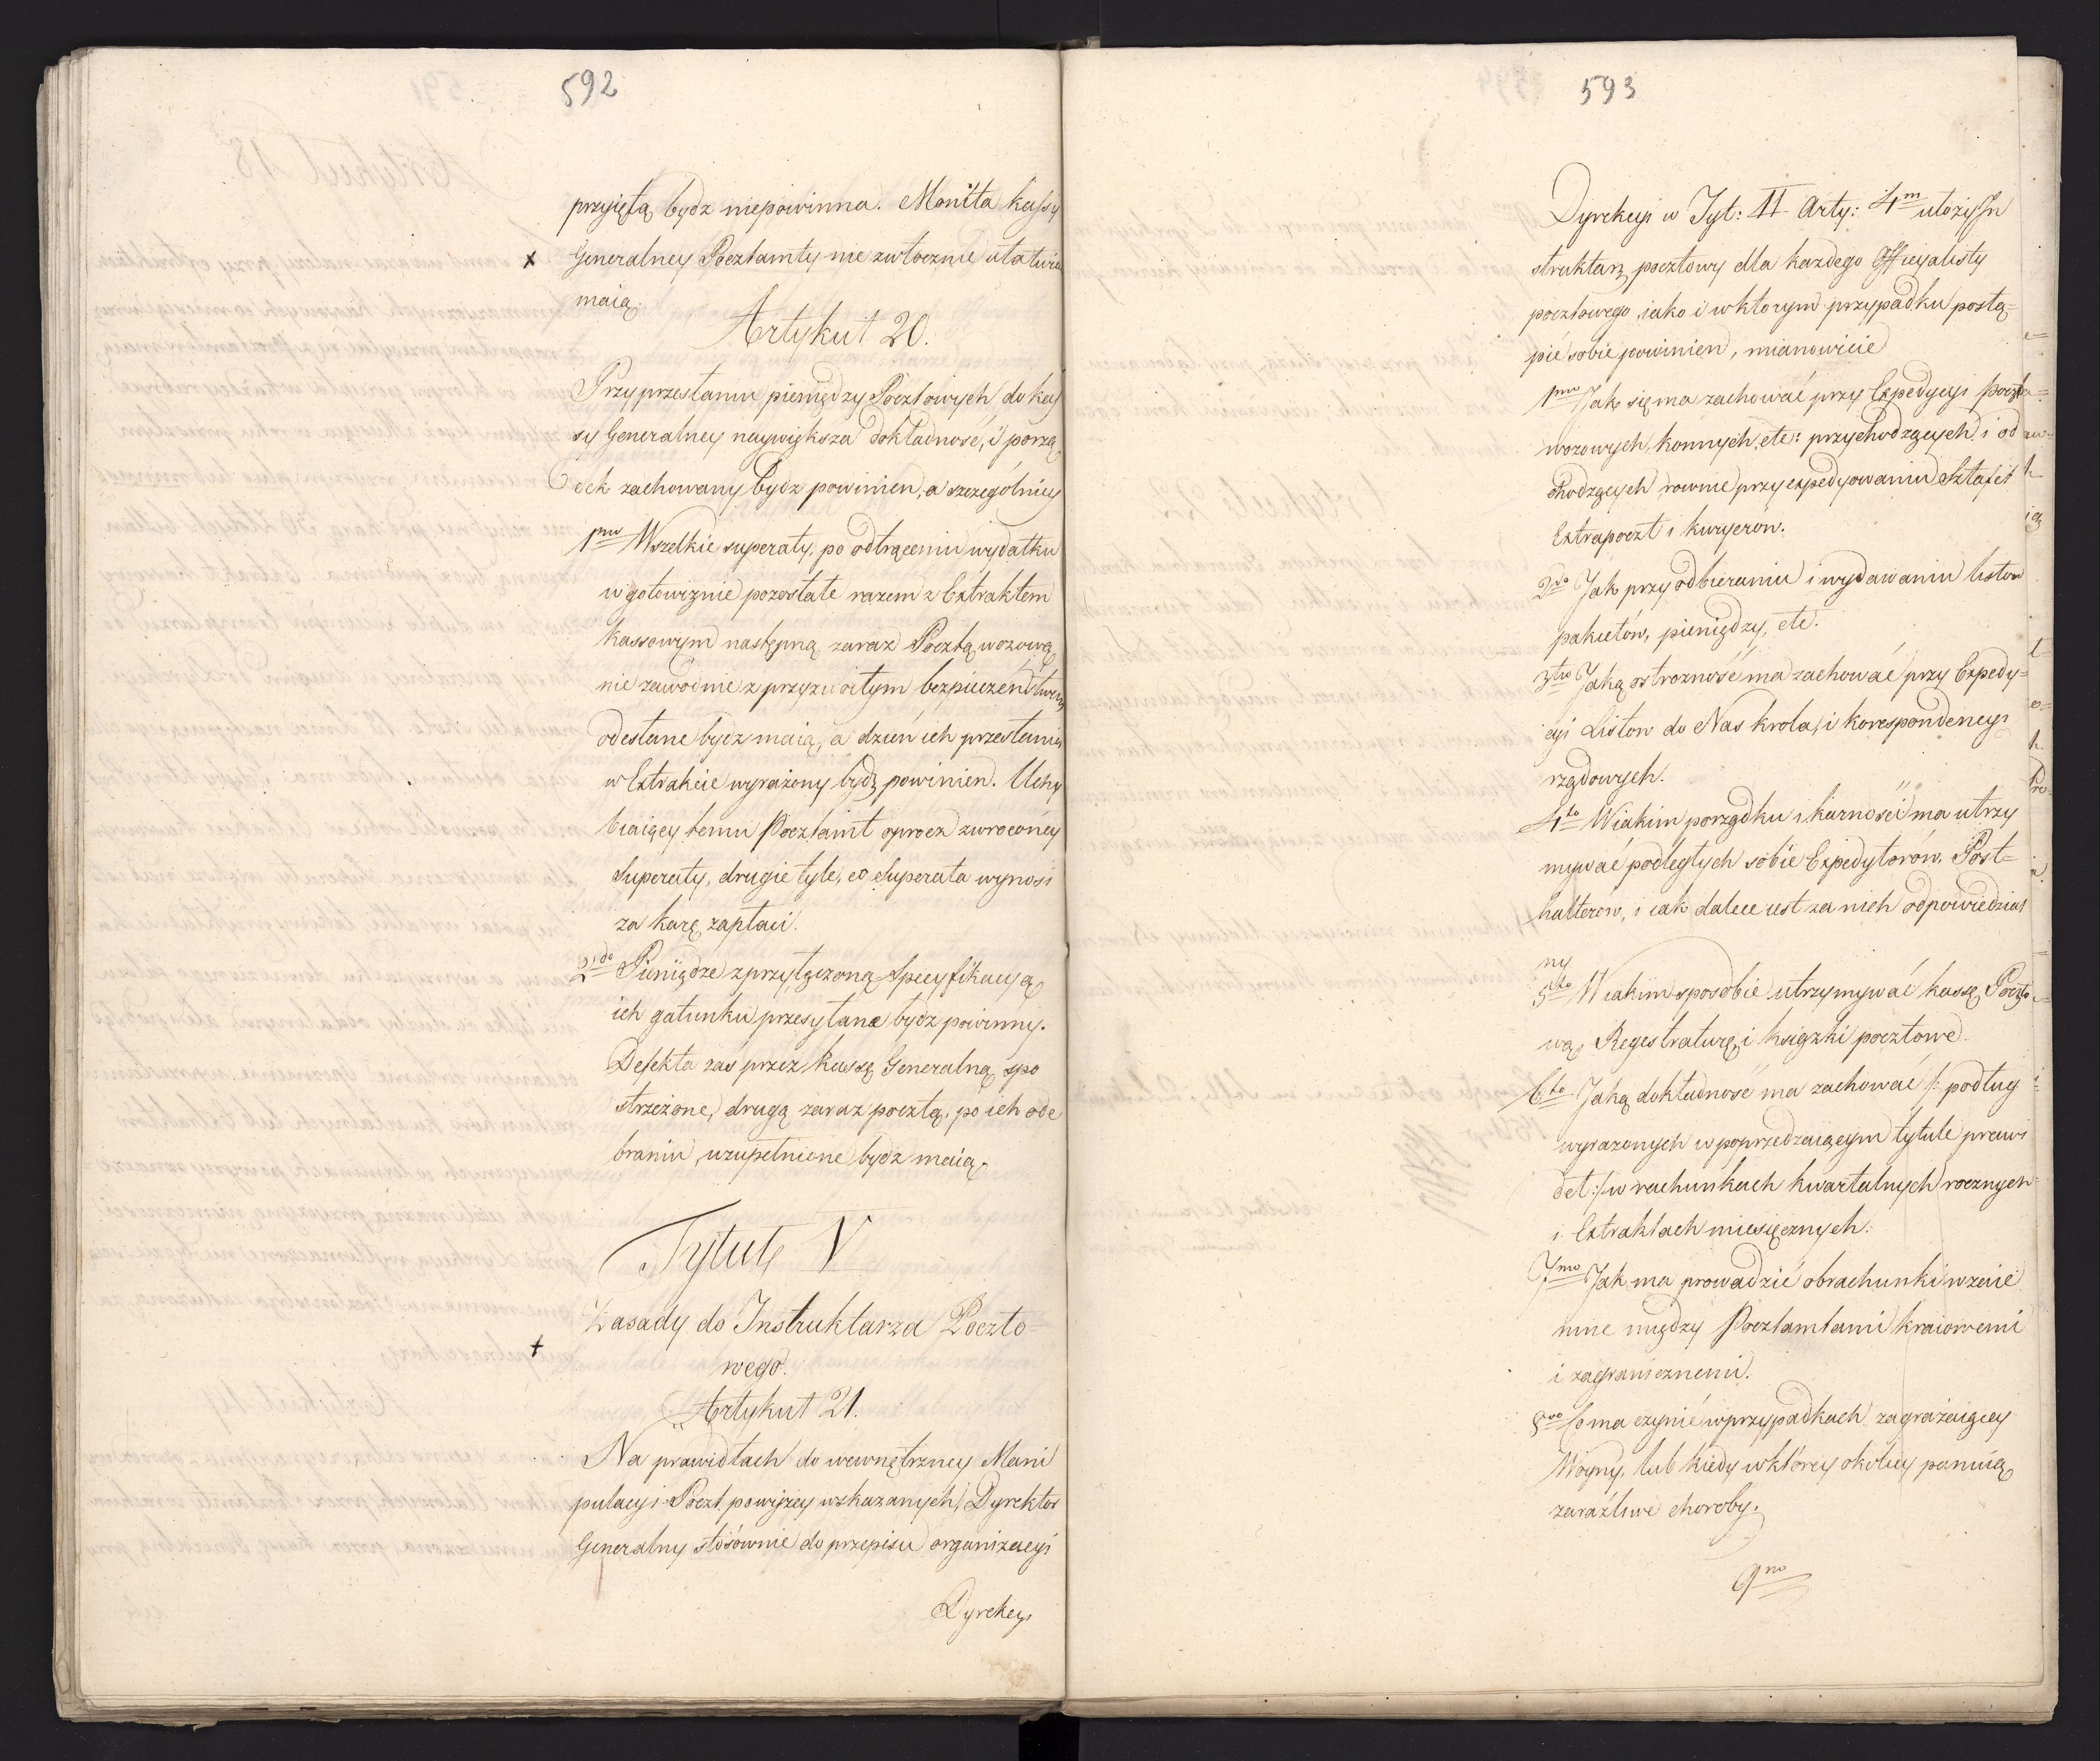 592
przyiętą bydz niepowinna. Monita kassy
x Generalney Pocztamty nie zwłocznie ułatwia
maią.
Artykuł 20.
Przy przesłaniu pieniędzy Pocztowych do kas
sy Generalney naywiększa dokładność, i porzą
dek zachowany bydz powinien, a szczególniey
1mo Wszelkie superaty, po odtrąceniu wydatku
w gotowiznie pozostałe razem z Extraktem
kassowym następną zaraz Pocztą wozową
nie zawodnie z przyzwoitym bezpieczeństwem
odesłane bydz maią, a dzień ich przesłania
w Extrakcie wyrażony bydz powinien. Uchy
biaiący temu Pocztamt oprocz zwroconey
Superaty, drugie tyle, co Superata wynosi
za karę zapłaci.
2do Pieniądze z przyłączoną Specyfikacyą
ich gatunku przesyłane bydz powinny.
Defekta zaś przez kassę Generalną spo
strzeżone, drugą zaraz pocztą, po ich ode
braniu, uzupełnione bydz maią.
Tytuł V
Zasady do Instruktarza Poczto-
+ wego.
Artykuł 21.
Na prawidłach do wewnętrzney Mani
pulacyi Poczt powyżey wskazanych, Dyrektor
Generalny stósownie do przepisu organizacyi
Dyrekcyi
593
Dyrekcyi w Tyt: II Arty: 4m ułoży In
struktarz pocztowy dla kazdego Officyalisty
pocztowego, iako i w ktorym przypadku postą=
pić sobie powinien, mianowicie
1mo Jak się ma zachować przy Expedycyi poczt
wozowych, konnych, etc: przychodzących i od
chodzących, rownie przy expedyowaniu Sztafet
Extrapoczt i kuryerow.
2do Jak przy odbieraniu i wydawaniu listow
pakietów, pieniędzy, etc.
3tio Jaką ostrozność ma zachować przy Expedy=
cyi Listow do Nas krola, i korespondencyi
rządowych.
4to W iakim porządku i karności ma utrzy
mywać podległych sobie Expedytorów, Post=
halterow, i iak dalece iest za nich odpowiedzial
ny
5to W iakim sposobie utrzymywać kassę Poczto
wą, Regestraturę i książki pocztowe.
6to Jaką dokładność ma zachować /: podług
wyrazonych w poprzedzaiącym tytule prawi
deł :/ w rachunkach kwartalnych rocznych
i Extraktach miesięcznych.
7mo Jak ma prowadzić obrachunki wzaie
mne między Pocztamtami kraiowemi
i zagranicznemi.
8vo Co ma czynić w przypadkach zagrażaiącey
Woyny, lub kiedy w którey okolicy panuią
zaraźliwe choroby.
9no